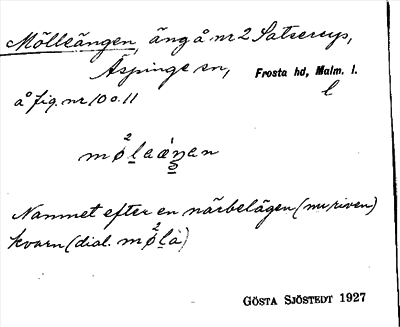 Mölleängen, äng å nr 2 Satserup,
Äspinge sn, Frosta hd, Malm. l.
å fig. nr 10 o. 11
l
Namnet efter en närbelägen (nu riven)
kvarn (dial.
GÖSTA SJÖSTEDT 1927